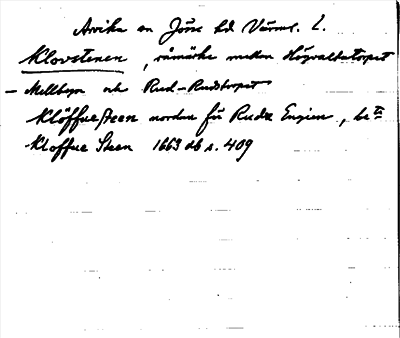 Arvika sn Jösse hd Värml. l.
Klovstenen, råmärke mellan Högvaltatorpet
– Mellbyn och Rud – Rudstorpet
Klöffue steen norden för Rudz Engien, be
Kloffue Steen 1663 db s. 409